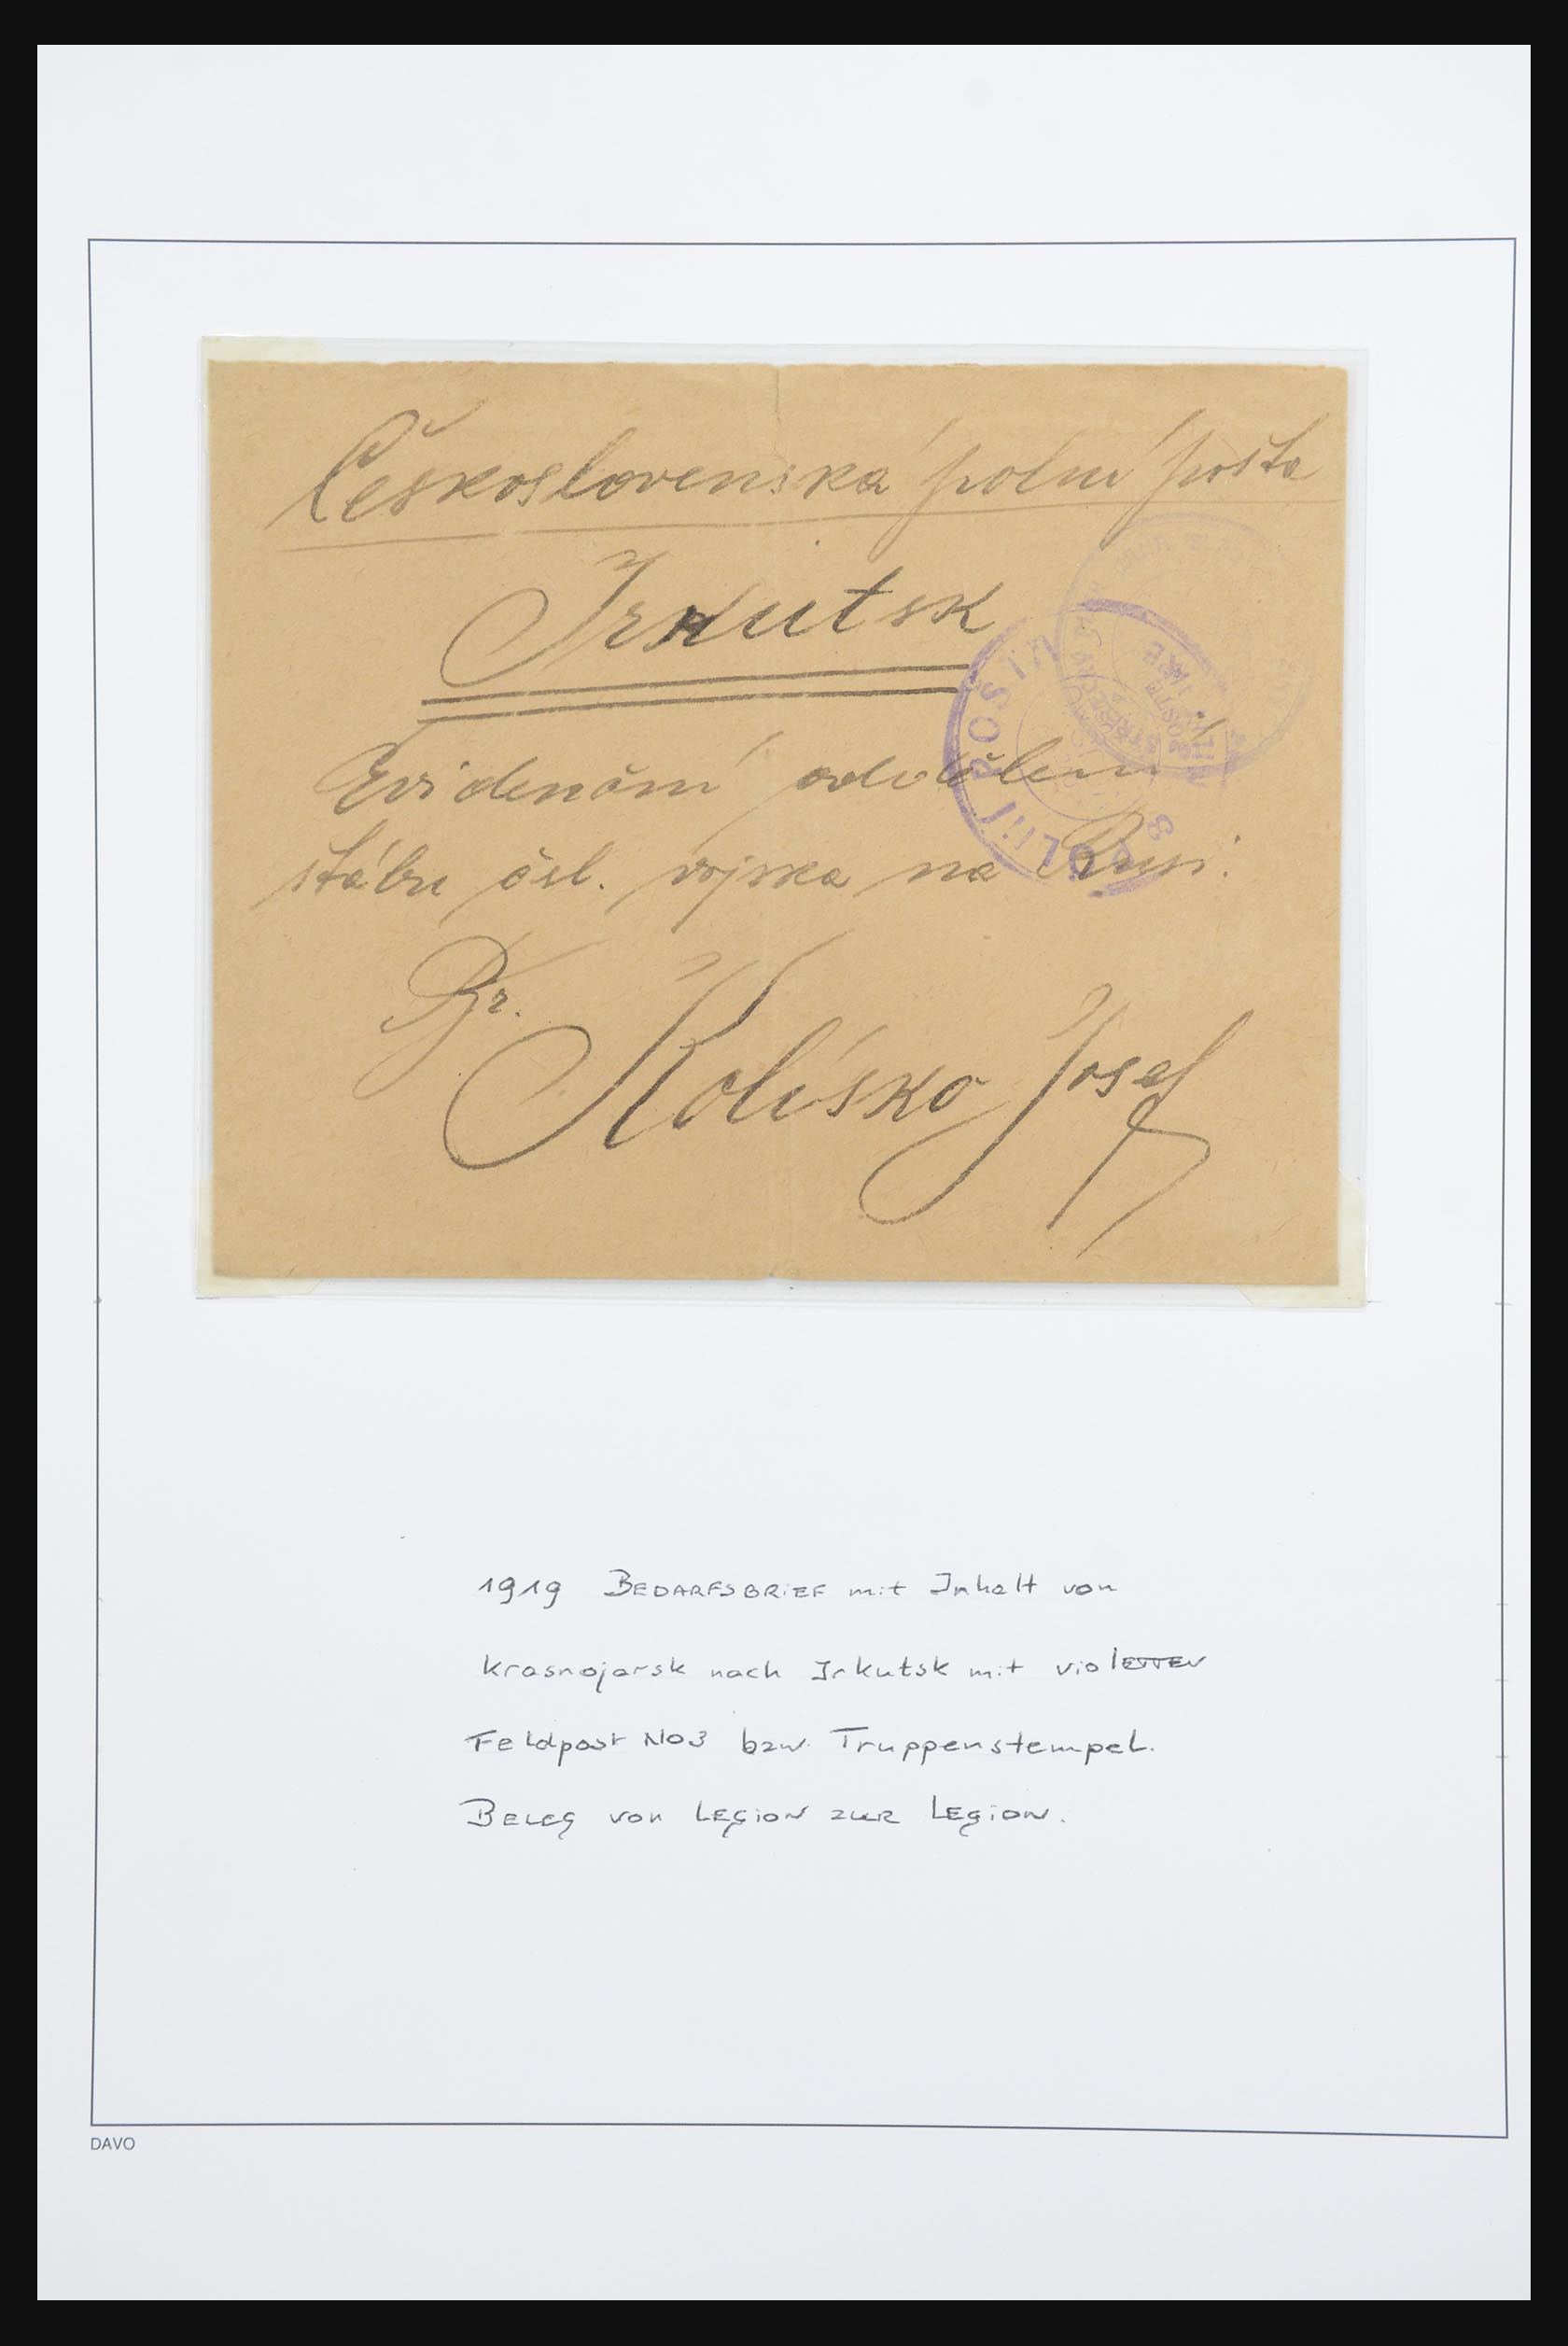 Československá polní pošta
Irkutsk
Evidenční oddělení
štábu čsl. vojska na Rusi.
Br.
Kolísko Josef
POLNÍ POŠTA
3
1919 BEDARFSBRIEF mit Inhalt von
Krasnojarsk nach Irkutsk mit violETTEN
Feldpost No3 bzw. Truppenstempel.
BELEG von LEGION ZUR LEGION.
DAVO